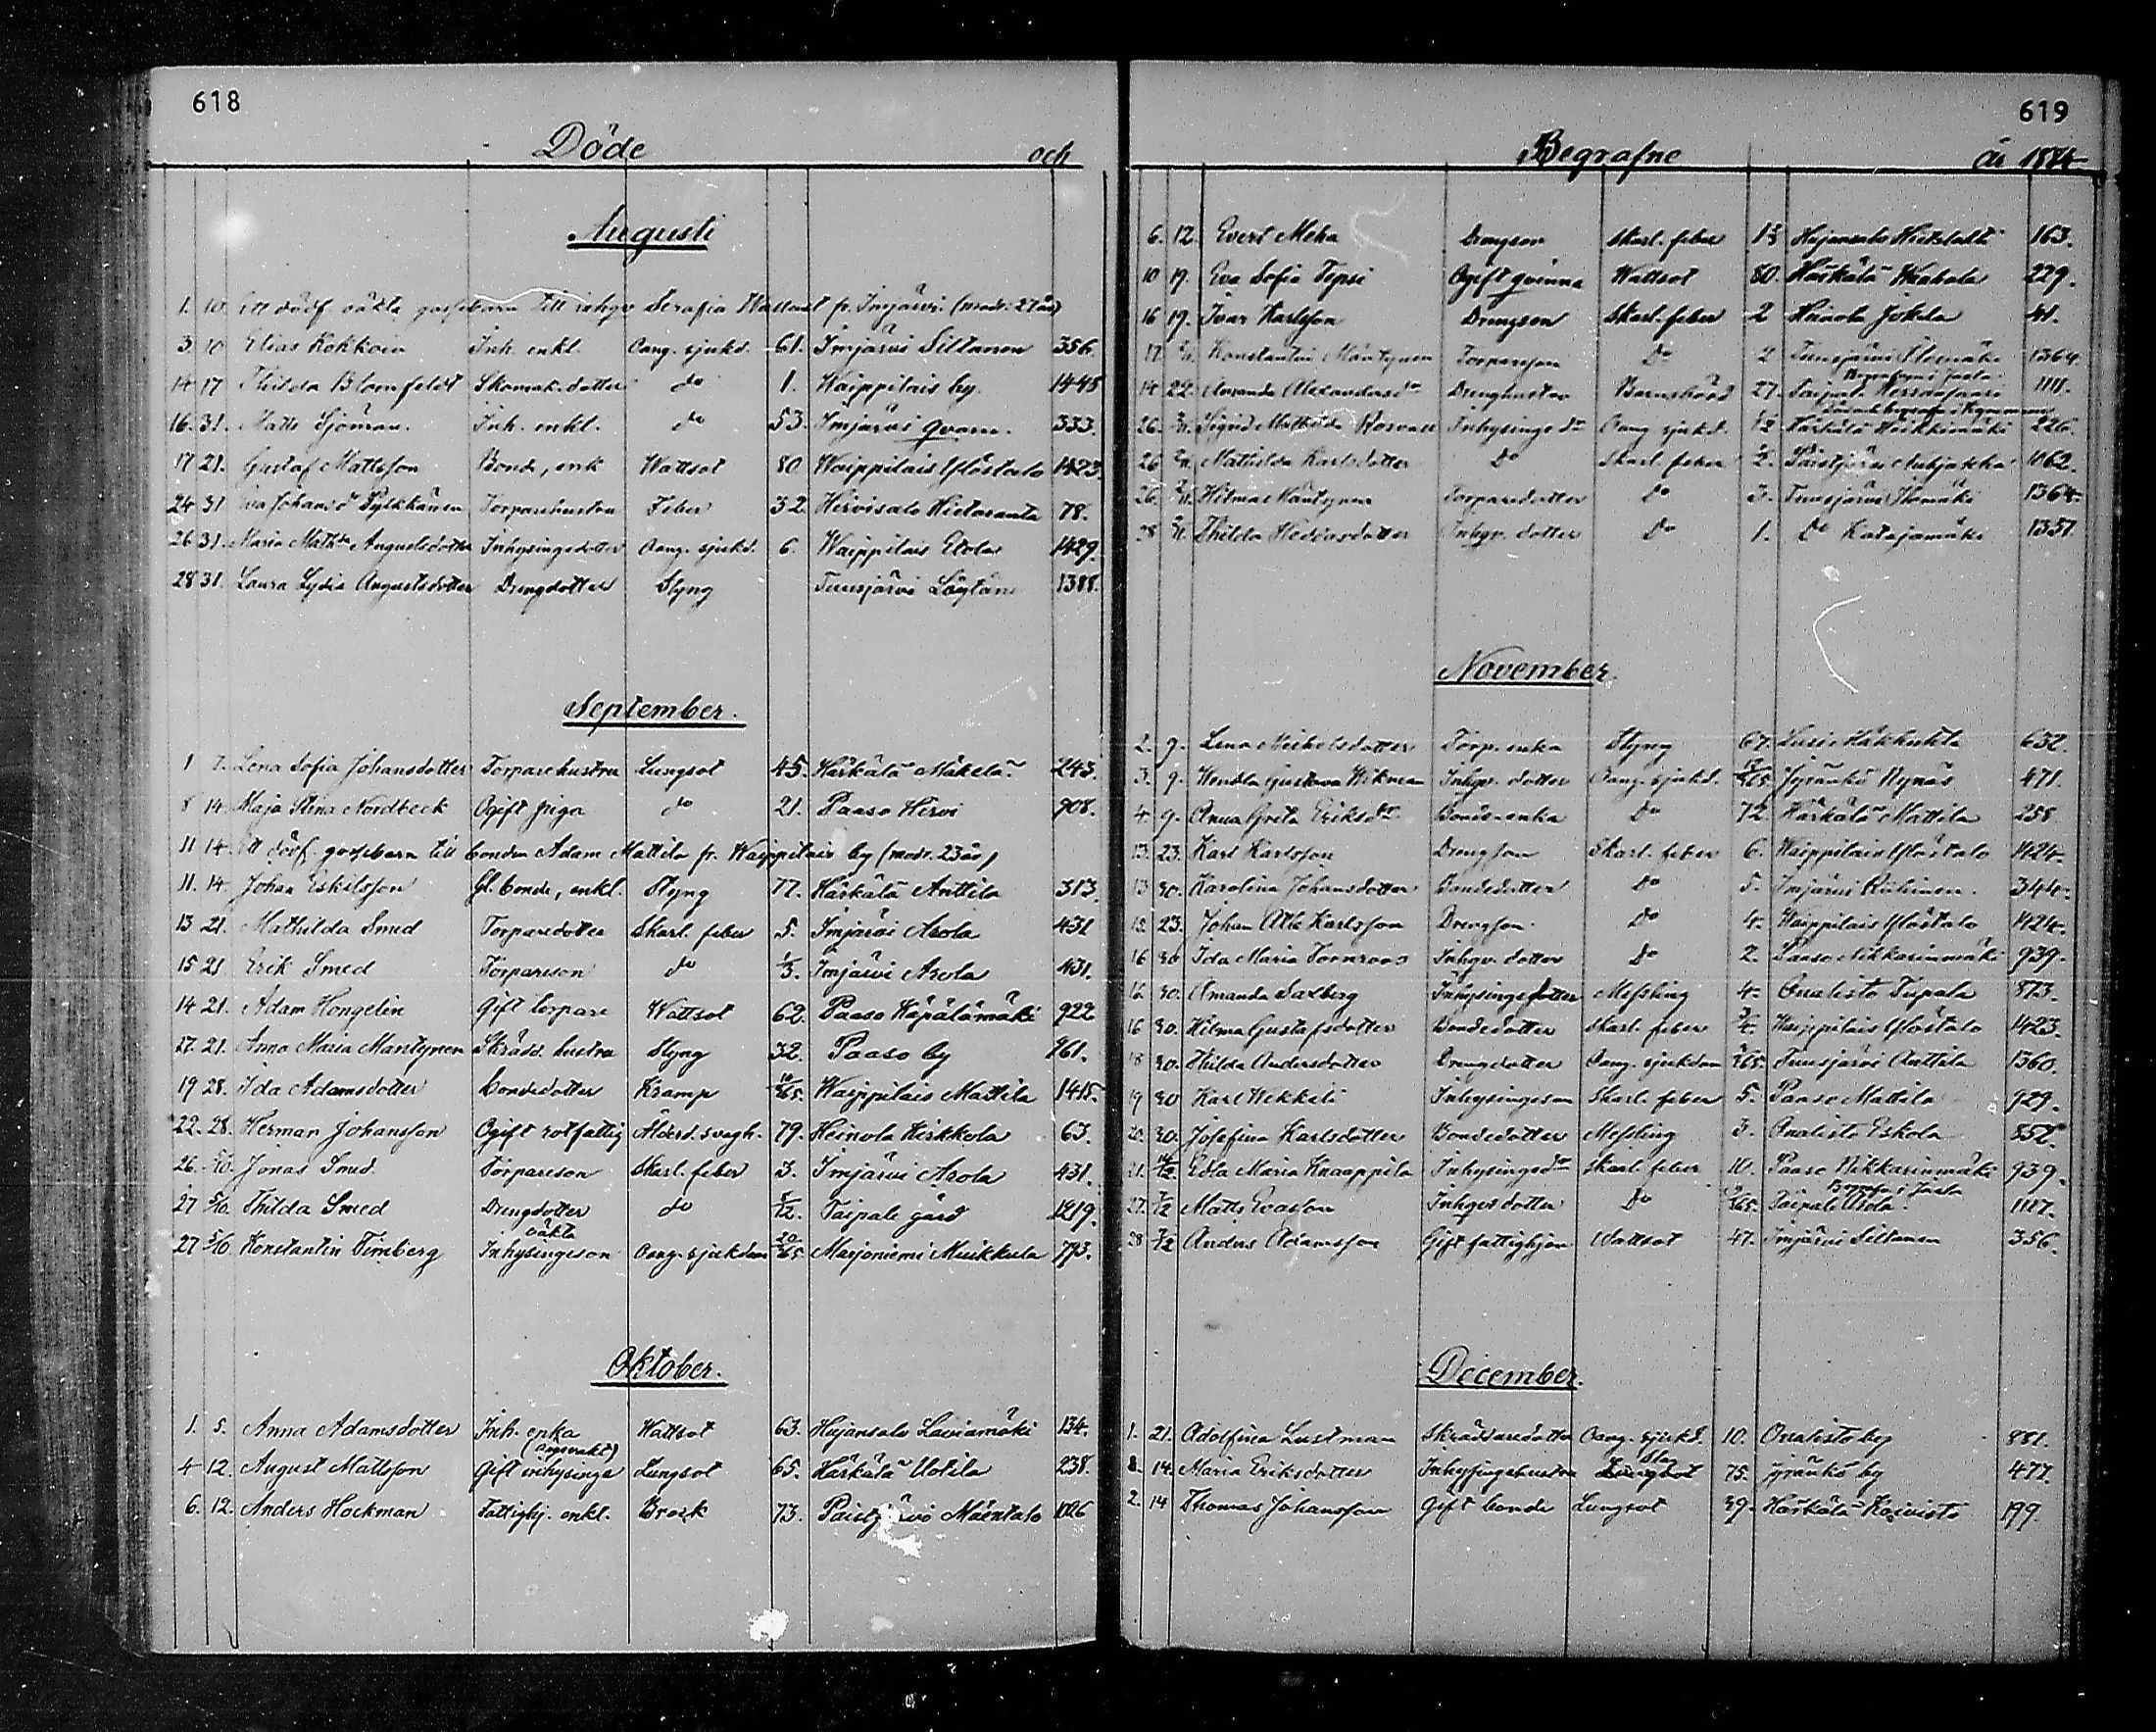 618
Döde och
Augusti
1. 10. Ett dödf. oäkta gossebarn till inhys Serafia Wallant fr. Imjärvi (modr. 27 år)
3. 10 Elias Kokkoin Inh. enkl. Oang. sjukd. 61. Imjärvi Siltanen 356.
14 17 Thilda Blomfeldt Skomak. dotter do 1. Waippilais by. 1445
16. 31. Matts Sjöman. Inh. enkl. do 53. Imjärvi qvarn. 333.
17 21. Gustaf Mattsson Bonde, enk Wattsot 80 Waippilais Yöstalo 1423.
24 31 Eva Johansd Pylkkänen Torparehustru Feber 32 Hirvisalo Hietaranta 78.
26 31. Maria Math:da Augustsdotter Inhysingedotter Oang. sjukd. 6. Waippilais Etola 1429.
28 31. Laura Lydia Augustsdotter Drengdotter Styng Tuusjärvi Löytön 1388.
September.
1 7. Lena Sofia Johansdotter Torparehustru Lungsot 45. Härkälä Mäkelä 243.
8 14. Maja Stina Nordbeck Ogift piga do 21. Paaso Hirvi 908.
11 14. Ett dödf. gossebarn till bonden Adam Mattila fr. Waippilais by (modr. 23 år)
11. 14. Johan Eskilsson Gl. bonde, enkl. Styng 77. Härkälä Anttila 313.
13 21. Mathilda Smed Torparedotter Skarl. feber 5. Imjärvi Asola 431
15 21 Erik Smed Torpareson do 1/3. Imjärvi Asola 431.
14 21. Adam Hongelin Gift torpare Wattsot 62. Paaso Käpälämäki 922
17. 21. Anna Maria Mantynen Skrädd. hustru Styng 32. Paaso by 961.
19 28. Ida Adamsdotter bondedotter Kramp 10/365. Waippilais Mattila 1415.
22. 28. Herman Johansson Ogift rotfattig Ålderd. svagh. 79. Heinola Kirkkola 63.
26. 5/10. Jonas Smed. Torpareson Skarl. feber 3. Imjärvi Asola 431.
27 5/10. Thilda Smed Drengdotter do 5/12. Taipale gård 1219.
27 5/10. Konstantin Timberg oäkta Inhysingeson Oang. sjukdom 20/365. Marjoniemi Muikkula 773.
Oktober.
1. 5. Anna Adamsdotter Inh. enka Wattsot 63. Hujansalo Laviamäki 134.
4 12. August Mattsson Gift inhysinge Lungsot 65. Härkälä Uotila 238.
6. 12. Anders Hockman Fattighj. enkl. Brock 73. Paistjärvi Mäentalo 1026
619
Begrafne år 1884
6. 12. Evert Meha Drengson Skarl. feber Hujansalo 163.
10 19. Eva Sofia Tepsi Ogift qvinna Wattsot 80. Härkälä 229.
16 19. Ivar Karlsson Drengson Skarl. feber 2 Heinola Jokela 41.
17. 2/11. Konstantin Mäntynen Torpareson Do 2 Tuusjärvi 1364.
14 22. Amanda Alexandersdr Drenghustru Barnsbörd 27. Taipale 1111.
26. 2/11. Sigrid Mathilda Rosvall Inhysinge dr Oang. sjukd. Härkälä Heikkimäki 226.
26 2/11. Mathilda Karlsdotter Do Skarl. feber 1/2. Paistjärvi 1062.
26. 2/11. Hilma Mäntynen Torparedotter Do 3. Tuusjärvi 1364.
28 2/11. Thilda Heddasdotter Inhys. dotter Do 1. Do Katajamäki 1351.
November.
2. 9. Lena Michelsdotter Torp. enka Styng 67. Lusi 632.
3. 9. Hendla Gustava Wikman Inhys. dotter Oang. sjukd. Jyränkö Nynäs 471.
4. 9. Anna Greta Eriksdr Bonde-enka Do 72. Härkälä Mattila 255
13. 23. Karl Karlsson Drengson Skarl. feber 6. Waippilais Yöstalo 1424.
13 30. Karolina Johansdotter Bondedotter Do 5. Imjärvi Riihinen. 344.
13. 23. Johan Atle Karlsson Drengson. Do 4. Waippilais Yöstalo 1424.
16 30 Ida Maria Tornroos Inhys. dotter Do 2. Paaso Nikkarinmäki 939.
16. 30. Amanda Saxberg Inhysingedotter Messling 4. Onalisto Tupala 873.
16 30. Hilma Gustafsdotter Bondedotter Skarl. feber 3/4. Waippilais Yöstalo 1423.
18 30. Hilda Andersdotter Drengdotter Oang. sjukdom Tuusjärvi Anttila 1360.
19 30 Karl Wekkeli Inhysingeson Skarl. feber 5. Paaso Mattila 929.
20. 30. Josefina Karlsdotter Bondedotter Messling 3. Onalisto Eskola 852.
21. 14/12. Edla Maria Knaappila Inhysinge dr Skarl. feber 10. Paaso Nikkarinmäki 939.
27. 7/12 Matts Evasson Inhyses dotter Do Taipale 1117.
28 7/12 Anders Adamsson Gift fattighjon Wattsot 47. Imjärvi Siltanen 356.
December.
1. 21. Adolfina Lustman Skräddaredotter Oang. sjukd. 10. Onalisto by 881.
8. 14. Maria Eriksdotter Inhysingehustru Lungsot 75. Jyränkö by 477.
2. 14 Thomas Johansson Gift bonde Lungsot 39. Härkälä Koivisto 199